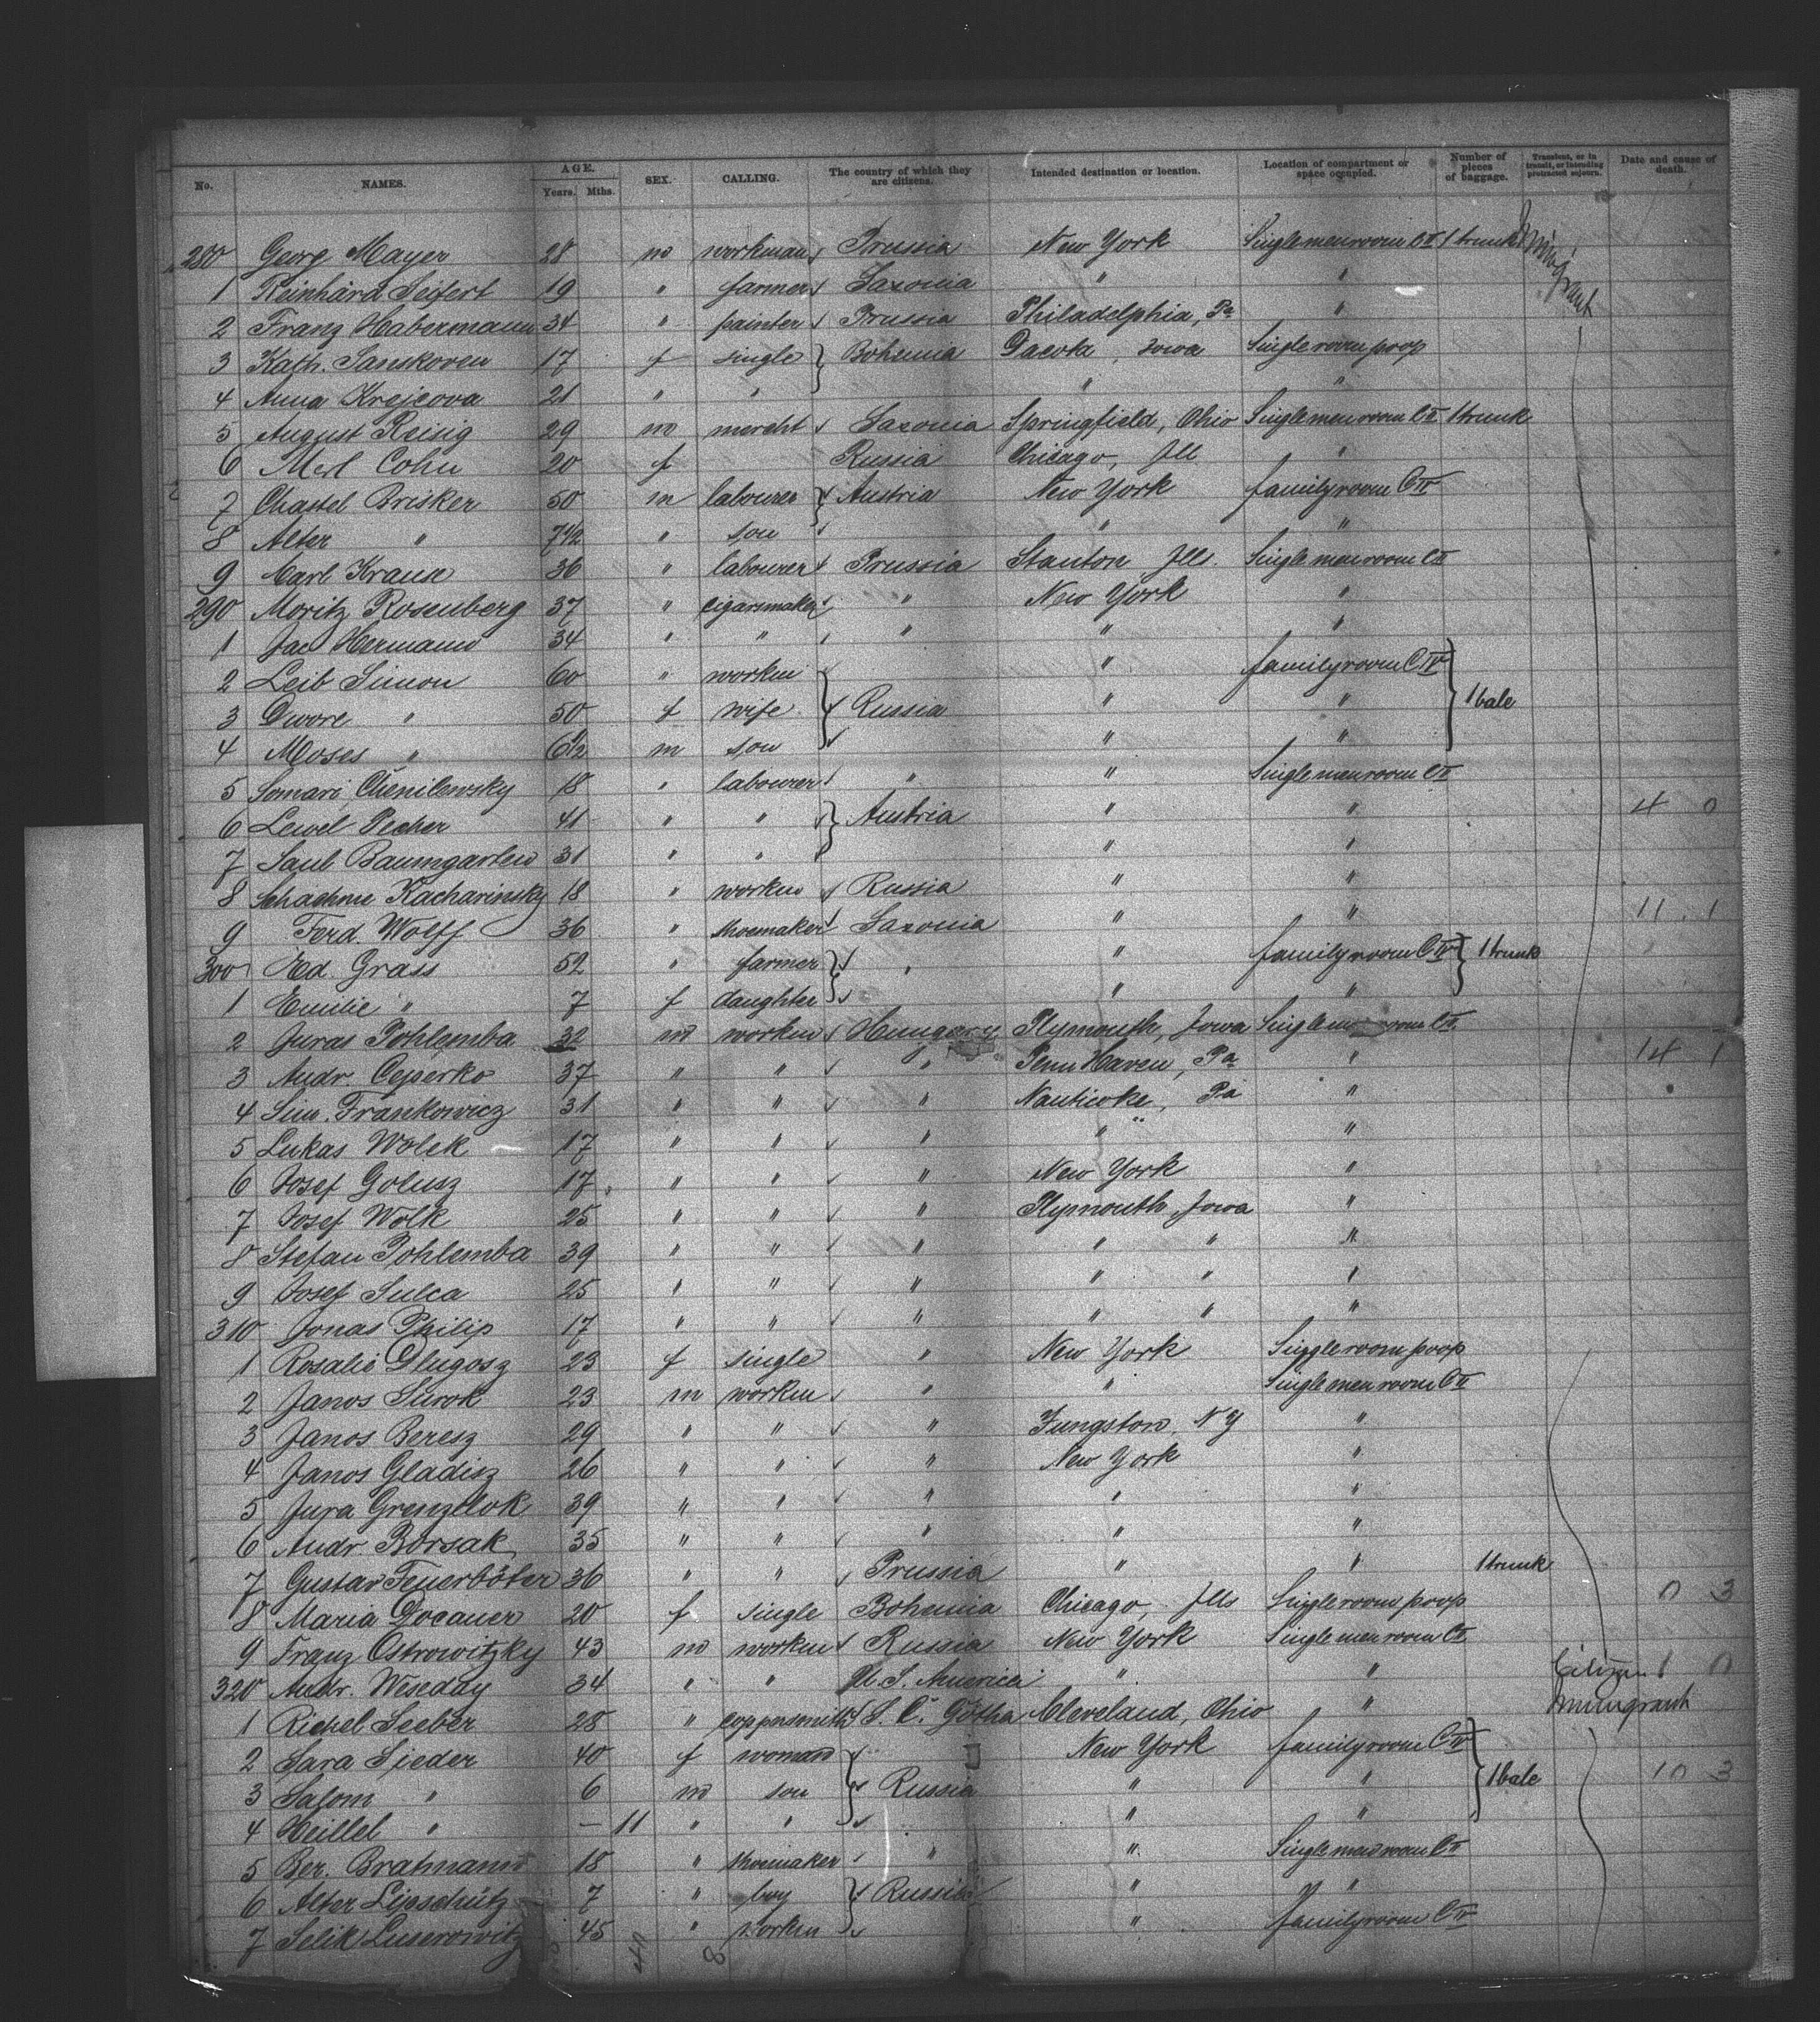 No. NAMES. AGE. Years. Mths. SEX. CALLING. The country of which they are citizens. Intended destination or location. Location of compartment or space occupied. Number of pieces of baggage. Transient, or in transit, or intending protracted sojourn. Date and cause of death.
280 Georg Mayer 28 m workman Prussia New York Single men room C II 1 trunk Immigrant
1 Reinhard Seifert 19 " farmer Saxonia " "
2 Franz Habermann 34 " painter Prussia Philadelphia, Pa "
3 Kath. Sanskoven 17 f single Bohemia Dacota, Iowa Single room poop
4 Anna Krejcova 21 " " " "
5 August Reisig 29 m mercht Saxonia Springfield, Ohio Single men room C II 1 trunk
6 Merl Cohn 20 f Russia Chicago, Ill "
7 Chastel Brisker 50 m labourer Austria New York family room C IV
8 Alter " 7 1/2 " son " "
9 Carl Kraus 36 " labourer Prussia Stanton Ills. Single men room C II
290 Moritz Rosenberg 37 " cigarsmaker " New York "
1 Jac Hermann 34 " " " " "
2 Leib Simon 60 " workm " family room C IV
3 Dwore " 50 f wife Russia " " 1 bale
4 Moses " 6 1/2 m son " "
5 Somari Chenilewsky 18 " labourer " " Single men room C II
6 Lewel Pecher 41 " " Austria " " 4 0
7 Saul Baumgarten 31 " " " "
8 Schachne Kacharinsky 18 " workm Russia " "
9 Ferd. Wolff 36 " shoemaker Saxonia " " 11 1
300 Ed Grass 52 " farmer " " family room C IV 1 trunk
1 Emilie " 7 f daughter " "
2 Juras Pohlemba 32 m workm Hungary Plymouth, Iowa Single men room C II
3 Andr. Ceperko 37 " " " Penn Haven, Pa " 14 1
4 Sim. Frankowicz 31 " " " Nanticoke, Pa "
5 Lukas Wolek 17 " " " " " "
6 Josef Golusz 17 " " " New York "
7 Josef Wolk 25 " " " Plymouth, Iowa "
8 Stefan Pohlemba 39 " " " " " "
9 Josef Sulca 25 " " " " " "
310 Jonas Philip 17 " " " " " "
1 Rosalie Dlugosz 23 f single " New York Single room poop
2 Janos Surok 23 m workm " " Single men room C II
3 Janos Beresz 29 " " " Fungston, N Y "
4 Janos Gladisz 26 " " " New York "
5 Jura Grenzelok 39 " " " " "
6 Andr. Borsak 35 " " " " "
7 Gustav Feuerböter 36 " " Prussia " " 1 trunk
8 Maria Docauer 20 f single Bohemia Chicago, Ills Single room poop 0 3
9 Franz Ostrowitzky 43 m workm Russia New York Single men room C II
320 Andr. Weseday 34 " " U. S. America " " Citizen 1 0
1 Richel Seeber 28 " coppersmith S. C. Gotha Cleveland, Ohio " Immigrant
2 Sara Sieder 40 f woman New York family room C IV
3 Salom " 6 m son Russia " " 1 bale 10 3
4 Heillel " – 11 " " " "
5 Ber. Bratmann 18 " shoemaker " " Single men room C II
6 Alter Lipschütz 7 " boy Russia " "
7 Selik Luserowitz 45 " workm " family room C IV